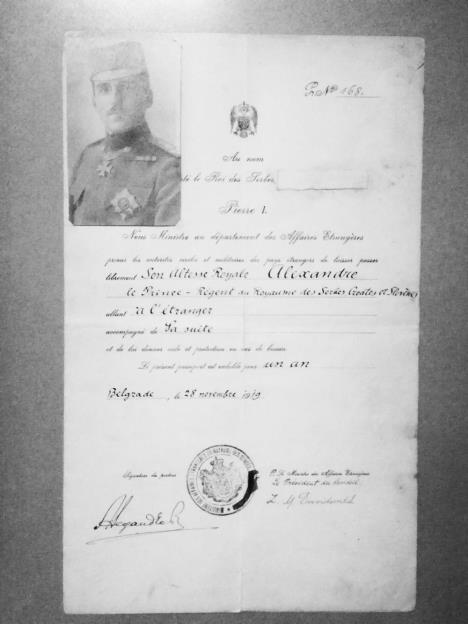 P. № 168.
Au nom
té le Roi des Serbes
Pierre I.
Nous Ministre au département des Affaires Etrangères
prions les autorités civiles et militaires des pays étrangers de laisser passer
librement Son Altesse Royale Alexandre
le Prince-Régent du Royaume des Serbes Croates et Slovènes
allant à l'étranger
accompagné de Sa suite
et de lui donner aide et protection en cas de besoin.
Le présent passeport est valable pour un an
Belgrade, le 28 novembre 1919
Signature du porteur
P. Le Ministre des Affaires Etrangères
Le Président du Conseil,